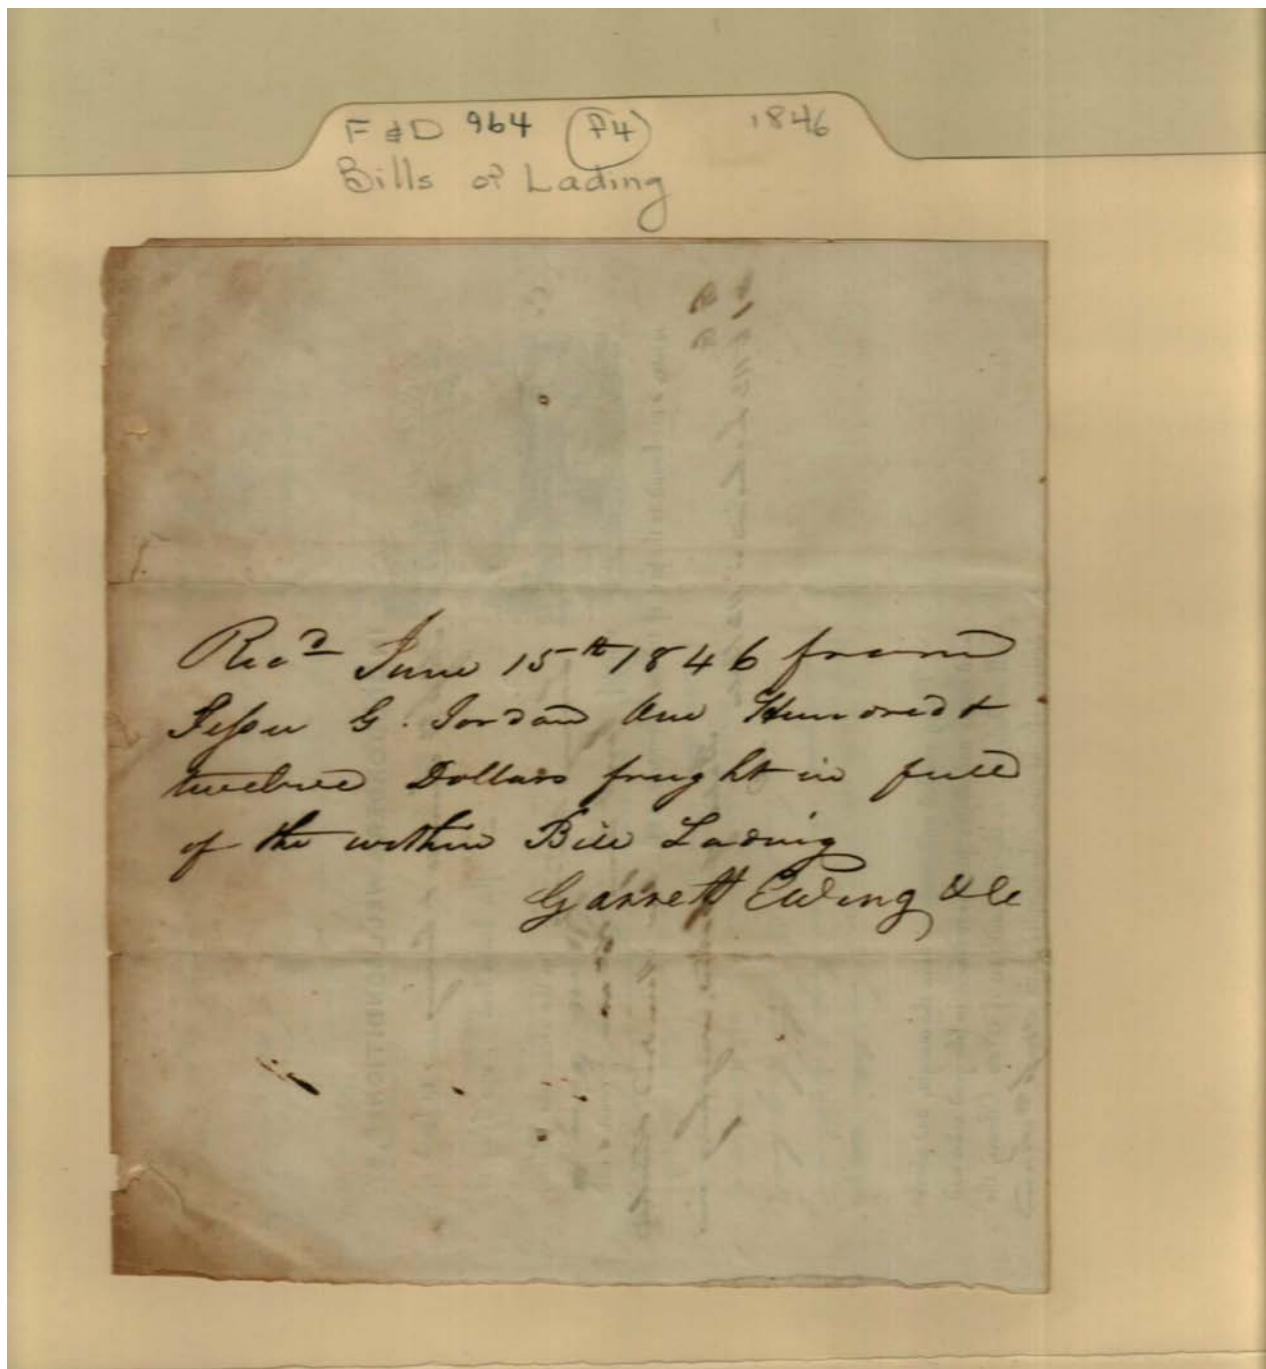 F & D 964 P4 1846
Bills of Lading
Recd June 15th 1846 from
Jesse G. Jordan One Hundred &
twelve Dollars fraght in full
of the within Bill Lading
Garrett Ewing & Co